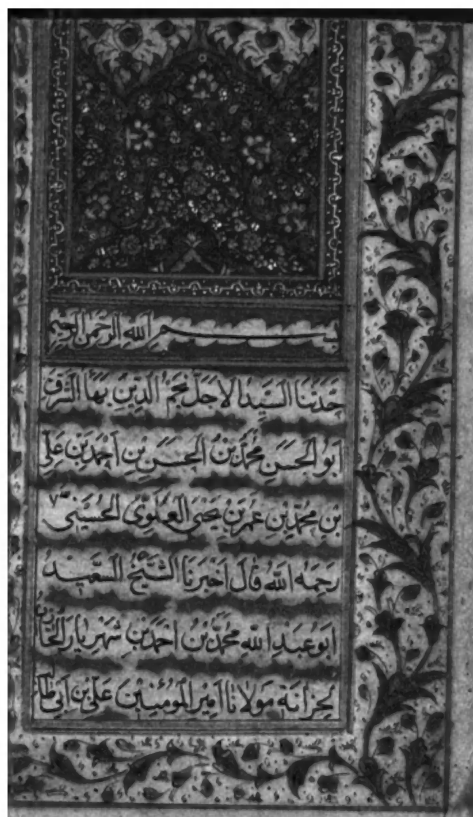 بسم الله الرحمن الرحيم
حَدَّثَنَا السَّيِّدُ الأَجَلُّ نَجْمُ الدِّينِ بَهَاءُ الشَّرَفِ
أَبُو الحَسَنِ مُحَمَّدُ بْنُ الحَسَنِ بْنِ أَحْمَدَ بْنِ عَلِيِّ
بْنِ مُحَمَّدِ بْنِ عُمَرَ بْنِ يَحْيَى العَلَوِيُّ الحُسَيْنِيُّ
رَحِمَهُ اللهُ قَالَ أَخْبَرَنَا الشَّيْخُ السَّعِيدُ
أَبُو عَبْدِ اللهِ مُحَمَّدُ بْنُ أَحْمَدَ بْنِ شَهْرِيَارَ الخَازِنُ
لِخِزَانَةِ مَوْلَانَا أَمِيرِ المُؤْمِنِينَ عَلِيِّ بْنِ أَبِي طَالِبٍ